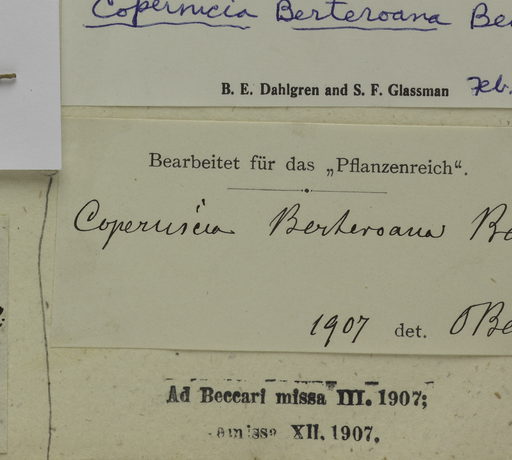 Copernicia Berteroana Be
B. E. Dahlgren and S. F. Glassman Feb.
Bearbeitet für das „Pflanzenreich“.
Copernicia Berteroana Be
1907 det. OBe
Ad Beccari missa III. 1907;
XII. 1907.